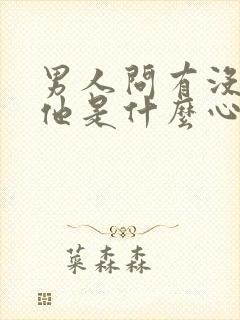 男人問有沒
他是什麼心
菜森森